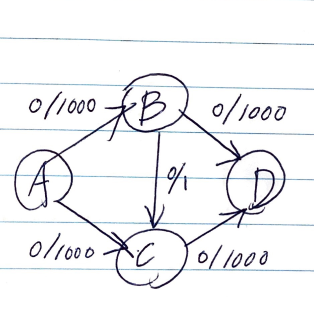 0/1000 B 0/1000
A 0/1 D
0/1000 C 0/1000